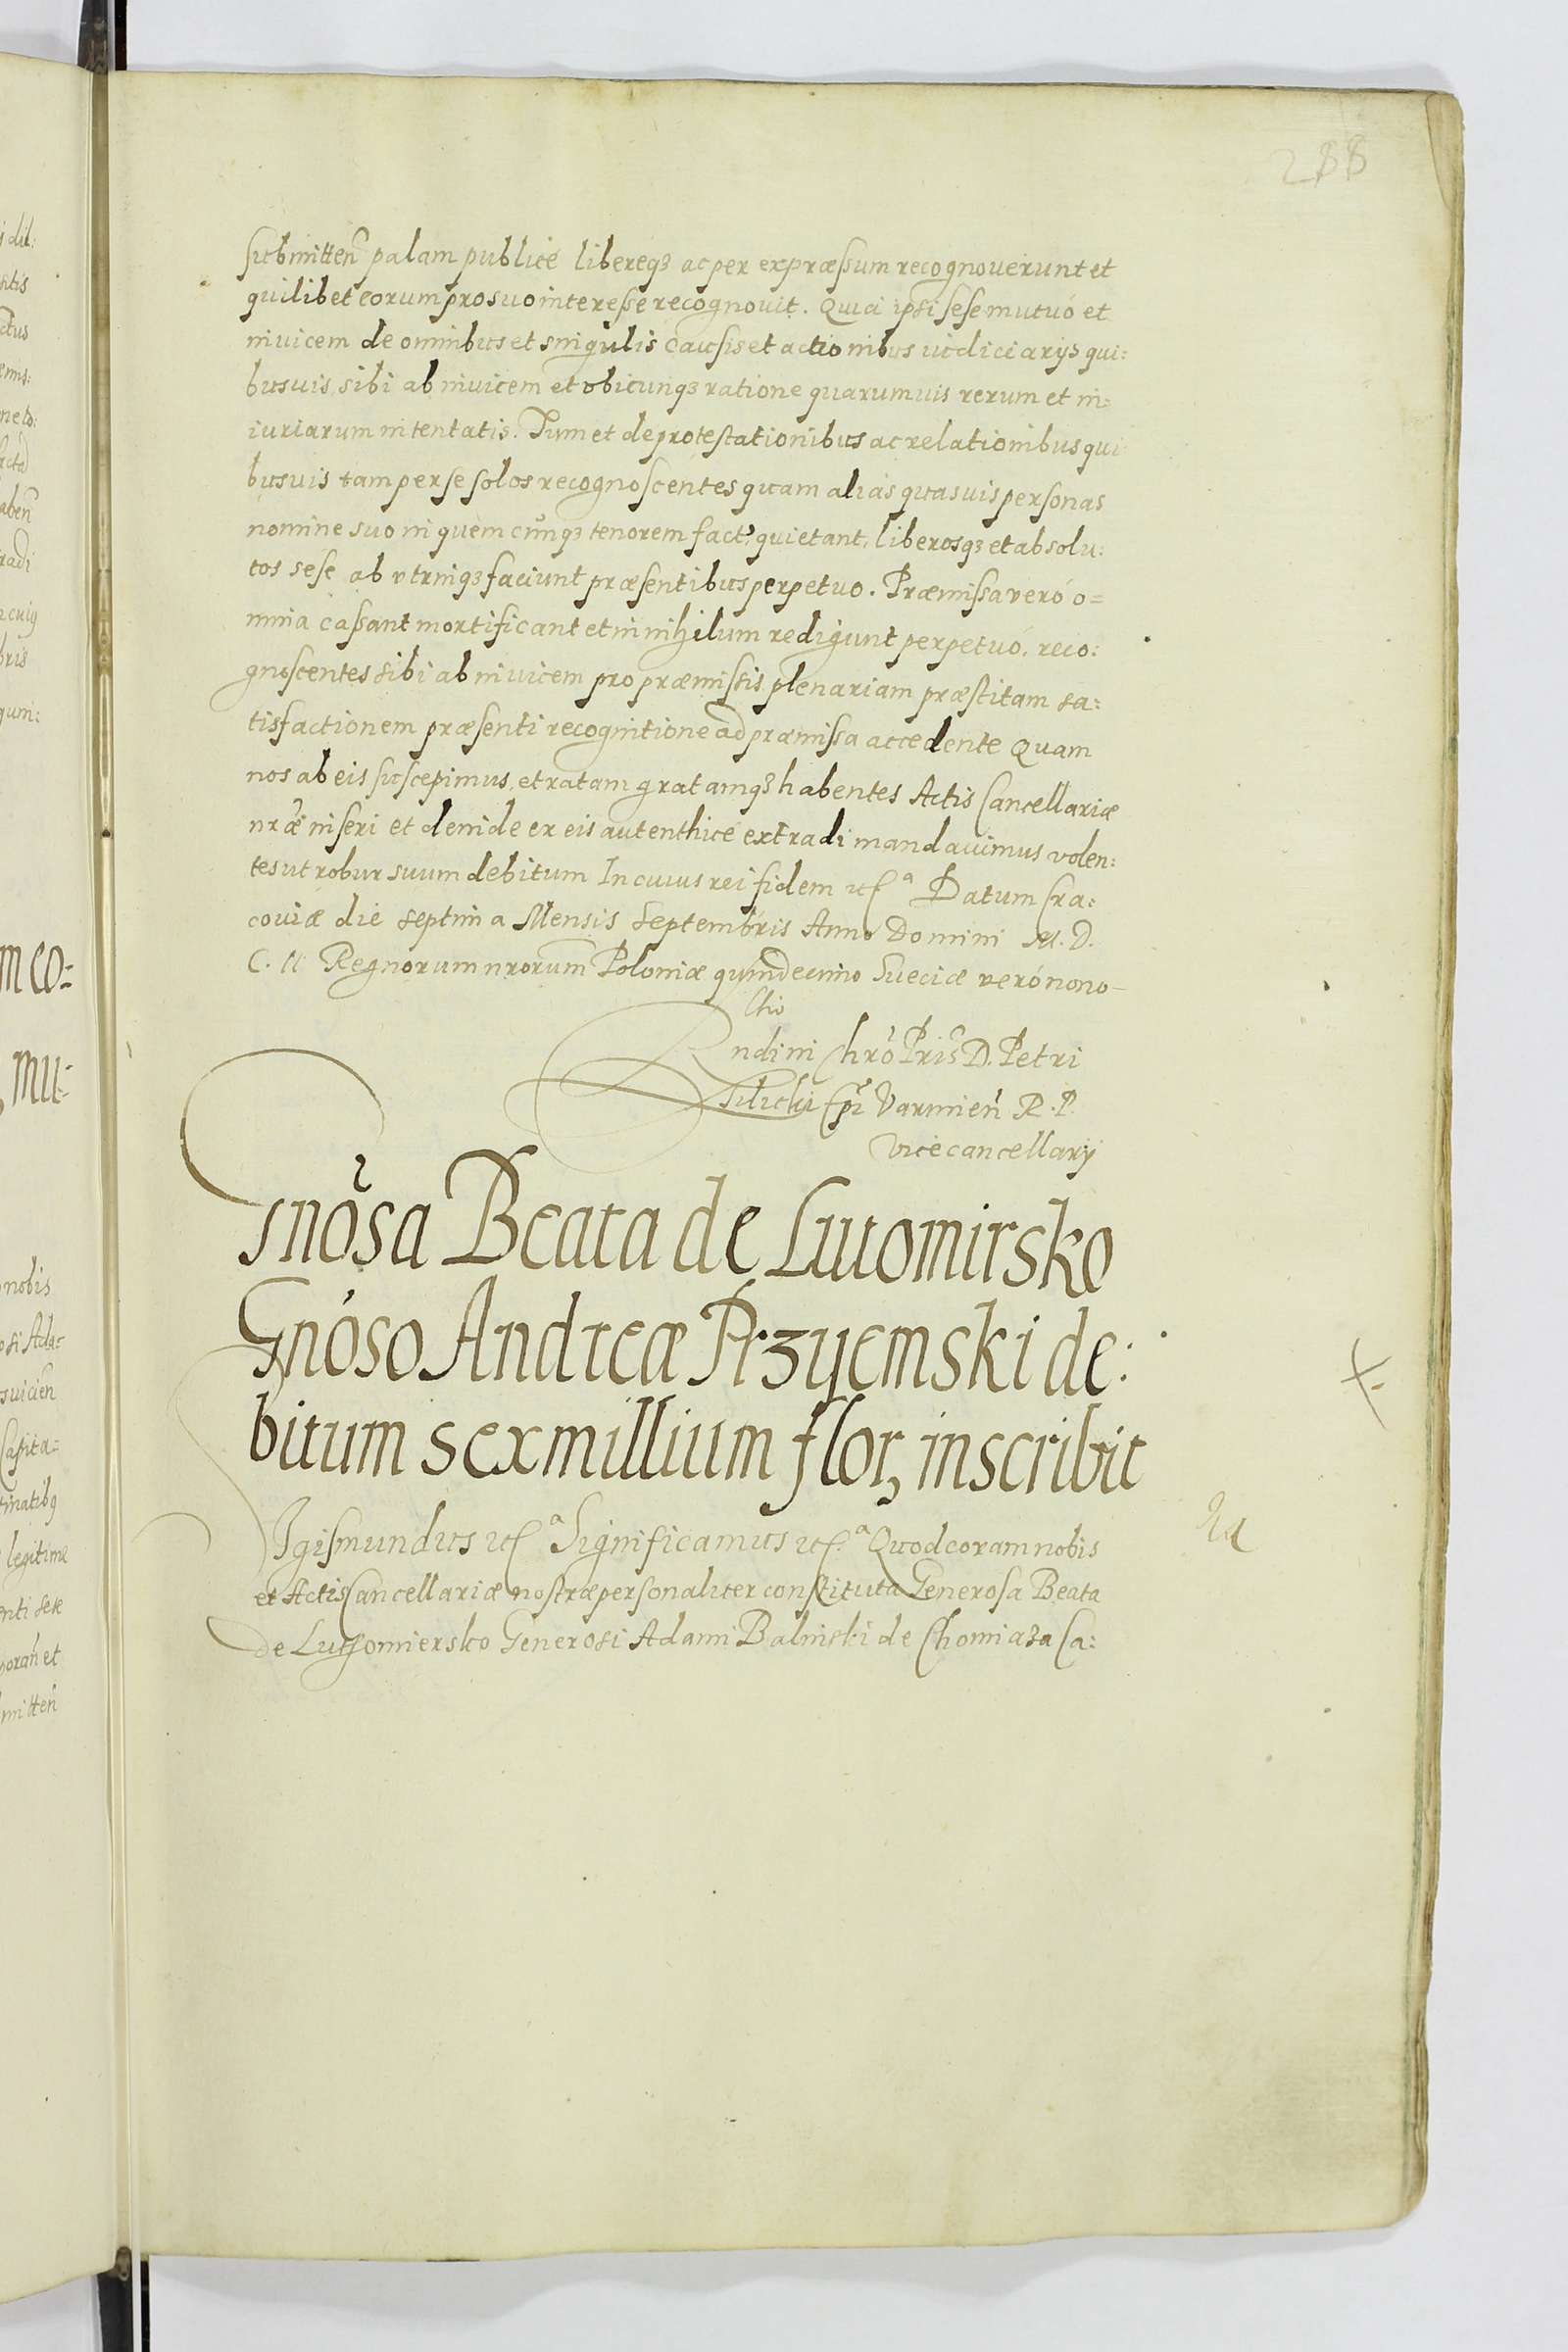 288
submitten̄ palam publicè libereqз ac per expræssum recognouerunt et
quilibet eorum pro suo interesse recognouit. Quia ipsi sese mutuó et
inuicem de omnibus et singulis causis et actionibus iudiciarijs qui:
busuis sibi ab inuicem et obicunqз ratione quarumuis rerum et in:
iuriarum intentatis. Tum et de protestationibus ac relationibus qui
busuis tam per se solos recognoscentes quam alias quasuis personas
nomine suo in quemcunqз tenorem fact: quietant, liberosqз et absolu:
tos sese ab vtrinqз faciunt præsentibus perpetuo. Præmissa veró o=
mnia cassant mortificant et in nihilum redigunt perpetuó, reco:
gnoscentes sibi ab inuicem pro præmissis plenariam præstitam sa:
tisfactionem præsenti recognitione ad præmissa accedente Quam
nos ab eis suscepimus, et ratam gratamqз habentes Actis Cancellariæ
nr̄æ inseri et deinde ex eis autenthicè extradi mandauimus volen:
tes ut robur suum debitum In cuius rei fidem etc̄ᵃ Datum Cra:
couiæ die septima Mensis Septembris Anno Domini M. D.
C. II Regnorum nrorum̄ Poloniæ quindecimo Sueciæ veró nono
Rndi in Chro Pris̄ D. Petri
Tilicki Ep̄i Varmien̄ R. P.
vicecancellarij
Gnosa Beata de Lutomirsko
Gnóso Andreæ Przyemski de:
bitum sex millium flor, inscribit
Sigismundus etc̄ᵃ Significamus etc̄.ᵃ Quod coram nobis
et Actis Cancellariæ nostræ personaliter constituta Generosa Beata
de Luthomiersko Generosi Adami Balinski de Chomiaza Ca: